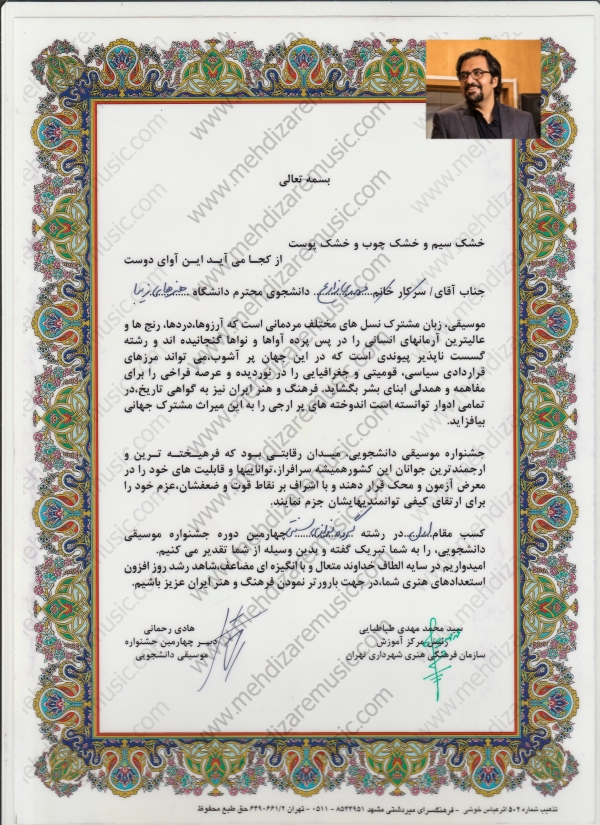 بسمه تعالی
خشک سیم و خشک چوب و خشک پوست
از کجا می آید این آوای دوست
جناب آقای/ سرکار خانم دانشجوی محترم دانشگاه هنرهای زیبا
موسیقی، زبان مشترک نسل های مختلف مردمانی است که آرزوها،دردها، رنج ها و
عالیترین آرمانهای انسانی را در پس پرده آواها و نواها گنجانیده اند و رشته
گسست ناپذیر پیوندی است که در این جهان پر آشوب،می تواند مرزهای
قراردادی سیاسی، قومیتی و جغرافیایی را در نوردیده و عرصه فراخی را برای
مفاهمه و همدلی ابنای بشر بگشاید. فرهنگ و هنر ایران نیز به گواهی تاریخ،در
تمامی ادوار توانسته است اندوخته های پر ارجی را به این میراث مشترک جهانی
بیافزاید.
جشنواره موسیقی دانشجویی، میدان رقابتی بود که فرهیخته ترین و
ارجمندترین جوانان این کشورهمیشه سرافراز،تواناییها و قابلیت های خود را در
معرض آزمون و محک قرار دهند و با اشراف بر نقاط قوت و ضعفشان،عزم خود را
برای ارتقای کیفی توانمندیهایشان جزم نمایند.
کسب مقام اول در رشته گروه نوازی سنتی چهارمین دوره جشنواره موسیقی
دانشجویی، را به شما تبریک گفته و بدین وسیله از شما تقدیر می کنیم.
امیدواریم در سایه الطاف خداوند متعال و با انگیزه ای مضاعف،شاهد رشد روز افزون
استعدادهای هنری شما،در جهت بارورتر نمودن فرهنگ و هنر ایران عزیز باشیم.
سید محمد مهدی طباطبایی
رئیس مرکز آموزش
سازمان فرهنگی هنری شهرداری تهران
هادی رحمانی
دبیر چهارمین جشنواره
موسیقی دانشجویی
تذهیب شماره ۵۰۲ اثرعباس خوشی - فرهنگسرای میردشتی مشهد ۸۵۴۴۹۵۱ - ۰۵۱۱ - تهران ۶۴۹۰۶۶۱/۲ حق طبع محفوظ
www.mehdizaremusic.com